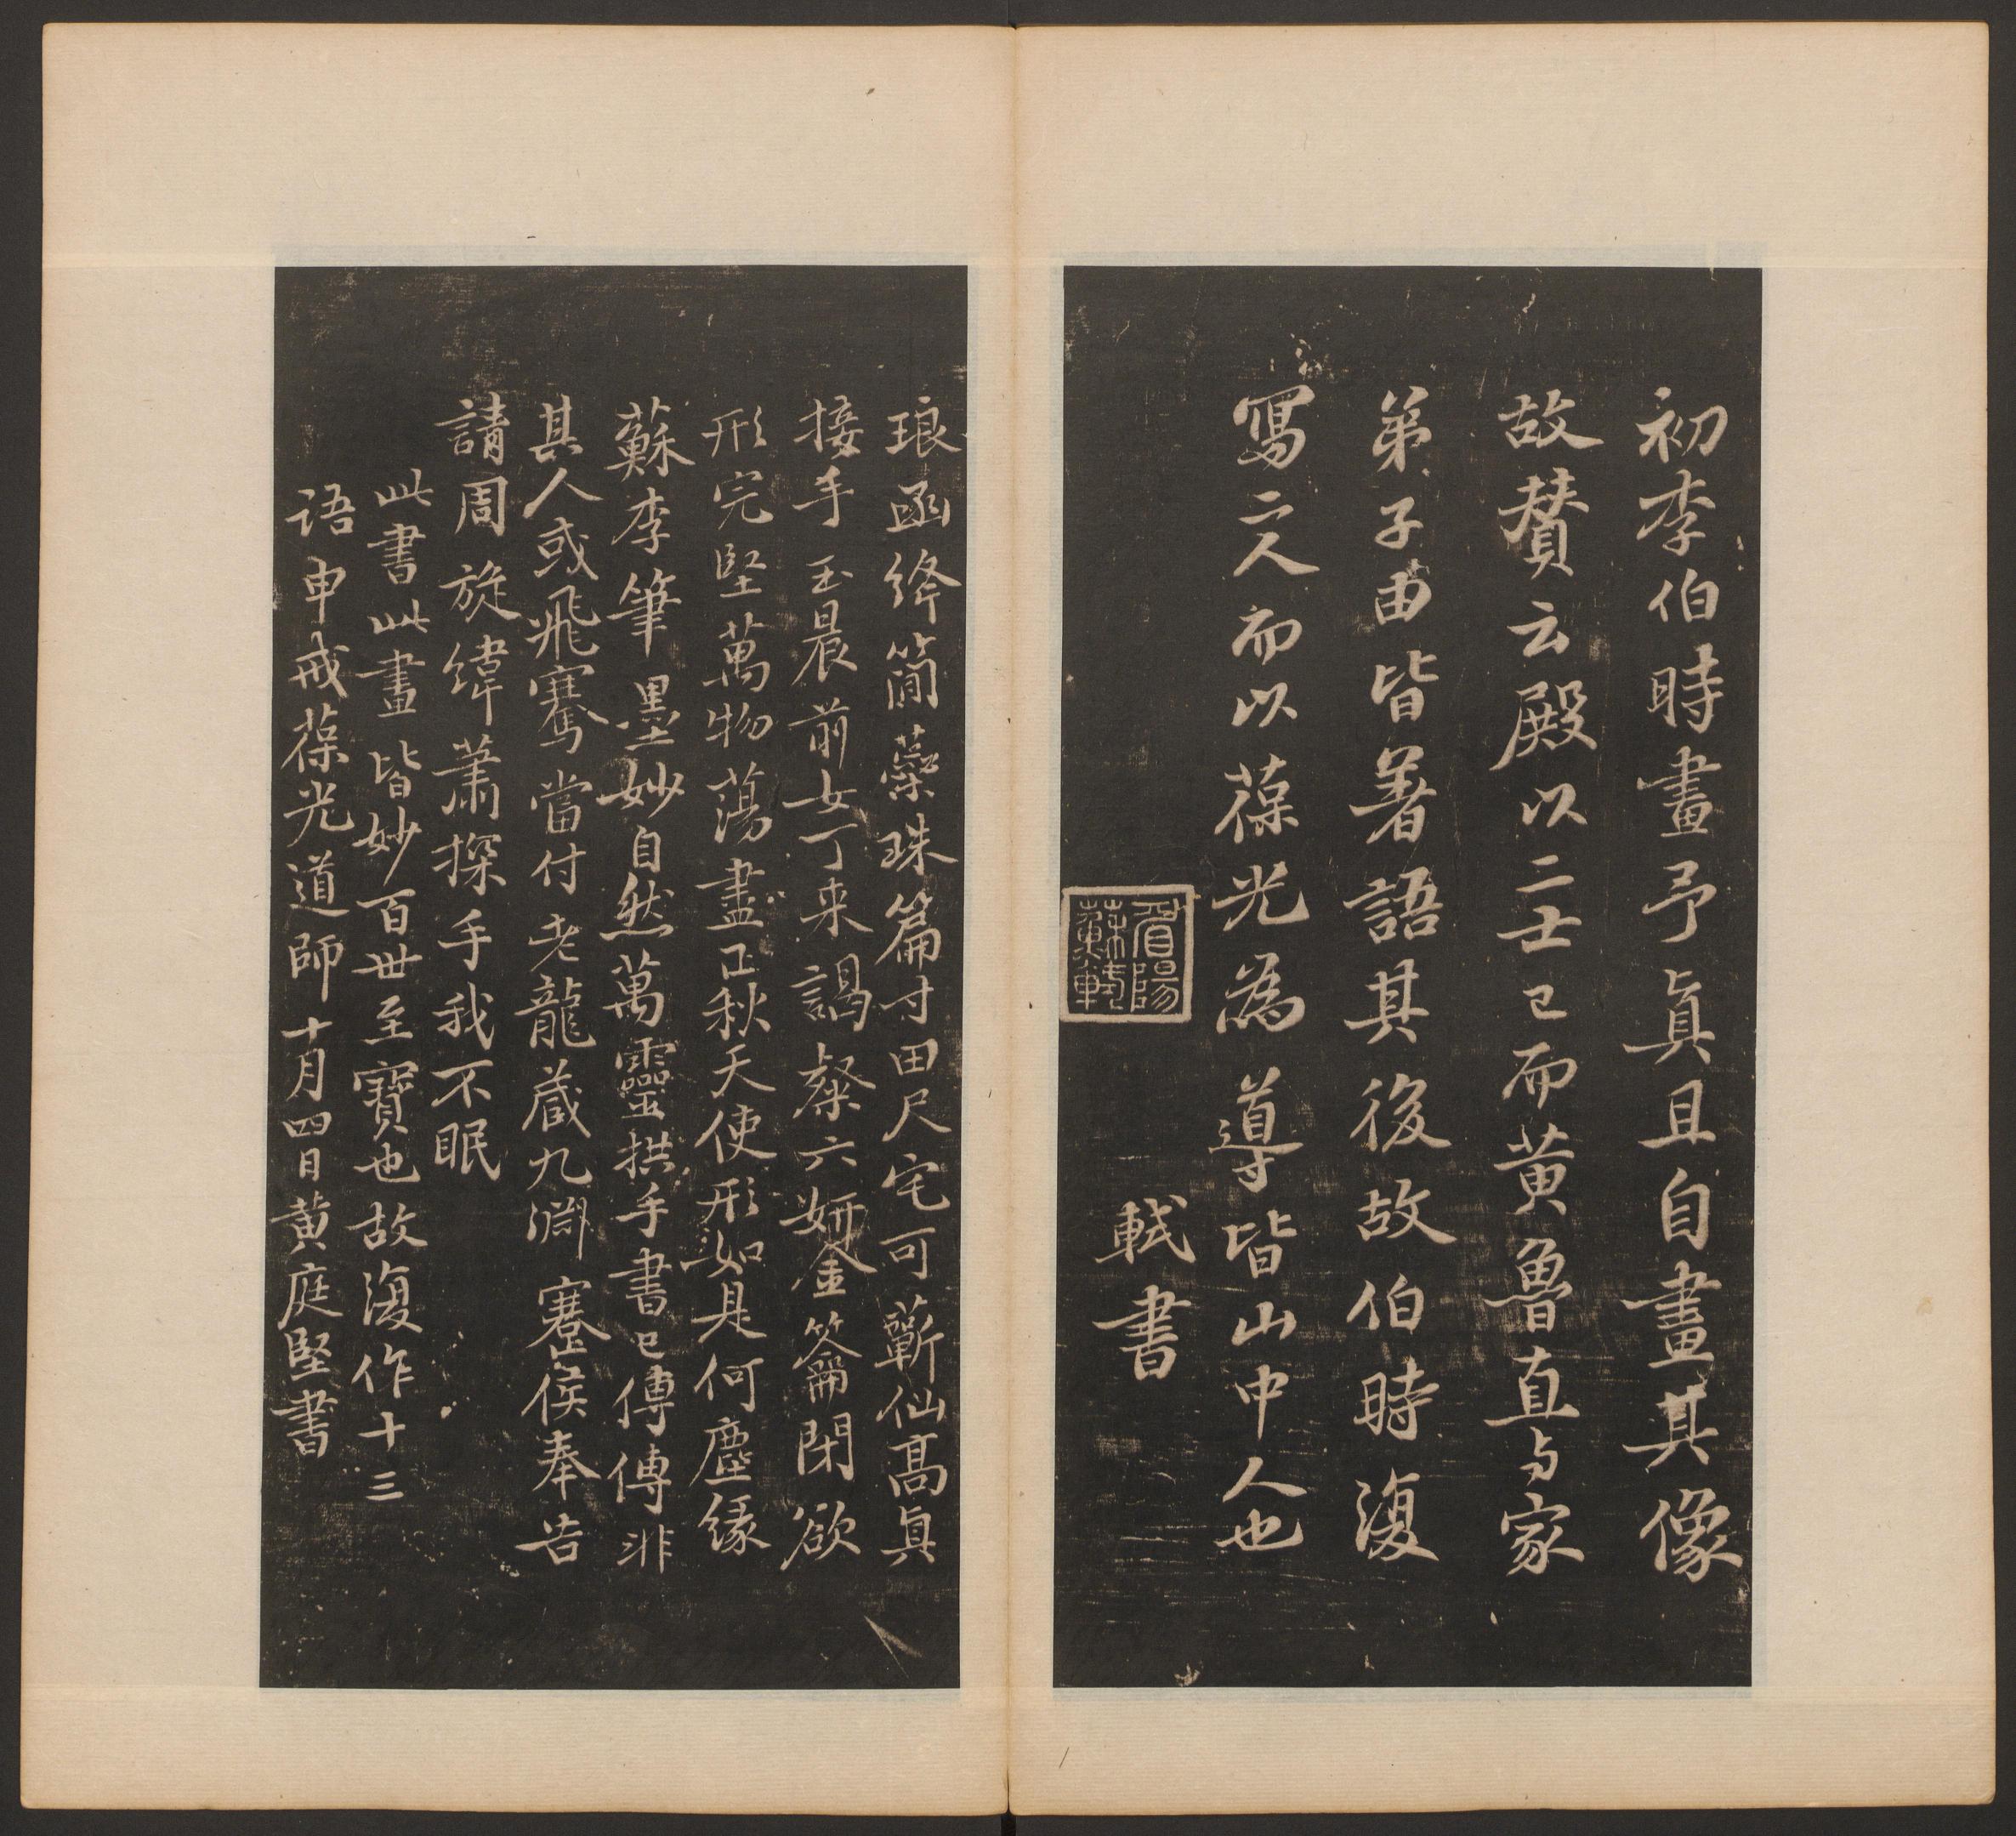 初李伯時畫予真且自畫其像
故贊云殿以二士已而黃魯直与家
弟子由皆著語其後故伯時復
寫二人而以葆光為導皆山中人也
軾書
眉陽
蘇軾
琅函絳簡蘂珠篇寸田尺宅可蘄仙高真
接手玉晨前女丁来謁粲六妍金籥閉欲
形完堅萬物蕩盡正秋天使形如是何塵緣
蘇李筆墨妙自然萬靈拱手書已傳傳非
其人或飛騫當付老龍蔵九淵蹇侯奉告
請周旋緯蕭探手我不眠
此書此畫皆妙百世至寶也故復作十三
語申戒葆光道師十月四日黃庭堅書